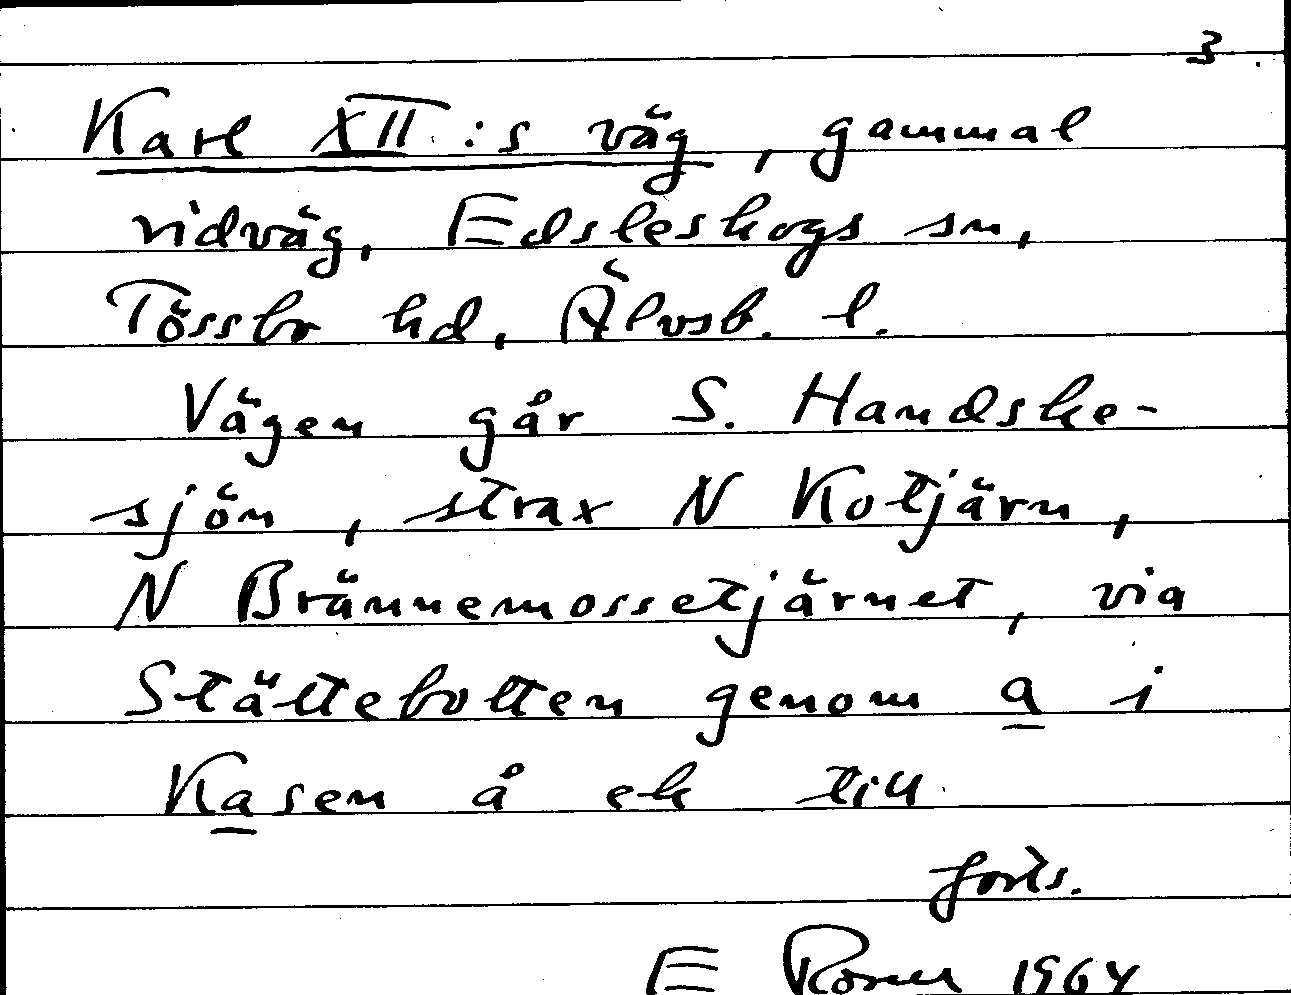 3
Karl XII:s väg, gammal
ridväg, Edsleskogs sn,
Tössbo hd, Älvsb. l.
Vägen går S. Handske-
sjön, strax N Kotjärn,
N Brännemossetjärnet, via
Stättebotten genom a i
Kasen å ek till
forts.
E 1964